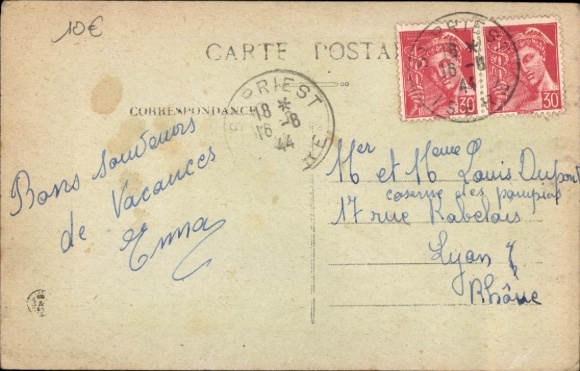 10€
CARTE POSTA
CORRESPONDANCE
ST PRIEST
18 *
16 - 8
44
PRIEST
18 *
16 - 8
44
30
30
Bons Souvenirs
de Vacances
Emma
Mer et Meme Louis Dupont
caserne des pompiers
17 rue Rabelais
Lyon
Rhône